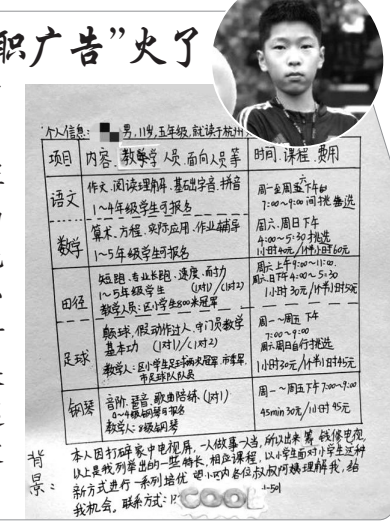 职广告”火了
个人信息: 男,11岁,五年级,就读于杭州
项目 内容、教学人员、面向人员等 时间、课程、费用
语文 作文、阅读理解、基础字音、拼音
1~4年级学生可报名
周一至周五下午
7:00~9:00间挑选
数学 算术、方程、实际应用、作业辅导
1~5年级学生可报名
周六、周日下午
4:00~5:30挑选
1小时40元/1个半小时60元
田径 短跑、专业长跑、速度、耐力
1~5年级学生 (1对1)/(1对2)
教学人员:区小学生800米冠军
周六上午9:00~11:00、
周六日下午4:00~5:30
1小时30元/1个半小时50元
足球 颠球、假动作过人、守门员教学
基本功 (1对1)/(1对2)
教学人:区小学生足球两次冠军、市季军、
市足球队队员
周一~周五下午
7:00~9:00
周六周日自行挑选
1小时30元/1个半小时45元
钢琴 音阶、琶音、歌曲陪练、(1对1)
0~4级钢琴可报名
教学人:8级钢琴
周一~周五下午7:00~9:00
45min 30元/1小时45元
背景: 本人因打碎家中电视屏,一人做事一人当,所以出来筹钱修电视,
以上是我列举出的一些特长,相应课程,以小学生面对小学生这种
新方式进行一系列培优 望小区内各位叔叔阿姨理解我,给
我机会,联系方式:
COOL